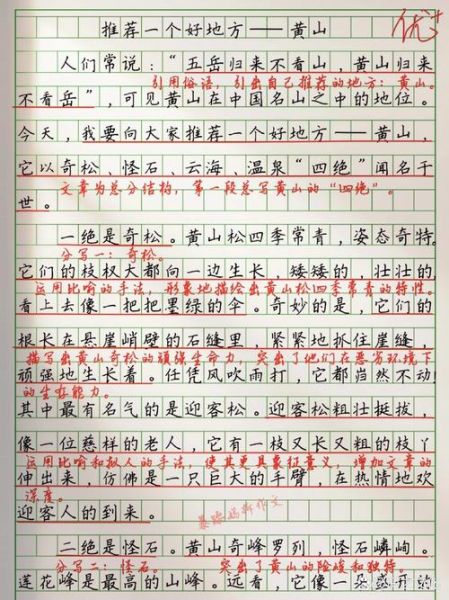 推荐一个好地方——黄山
优+
人们常说：“五岳归来不看山，黄山归来
引用俗语，引出自己推荐的地方：黄山。
不看岳”，可见黄山在中国名山之中的地位。
今天，我要向大家推荐一个好地方——黄山，
它以奇松、怪石、云海、温泉“四绝”闻名于
文章为总分结构，第一段总写黄山的“四绝”。
世。
一绝是奇松。黄山松四季常青，姿态奇特。
分写一：奇松。
它们的枝杈大都向一边生长，矮矮的，壮壮的
运用比喻的手法，形象地描绘出黄山松四季常青的特性。
看上去像一把把墨绿的伞。奇妙的是，它们的
根长在悬崖峭壁的石缝里，紧紧地抓住崖缝，
描写出黄山奇松的顽强生命力，突出了他们在恶劣环境下
顽强地生长着。任凭风吹雨打，它都岿然不动！
的生存能力。
其中最有名气的是迎客松。迎客松粗壮挺拔，
像一位慈祥的老人，它有一枝又长又粗的枝丫
运用比喻和拟人的手法，使其更具象征意义，增加文章的
伸出来，仿佛是一只巨大的手臂，在热情地欢
深度。
迎客人的到来。
二绝是怪石。黄山奇峰罗列，怪石嶙峋。
分写二：怪石。 突出了黄山的险峻和独特。
莲花峰是最高的山峰。远看，它像一朵盛开的